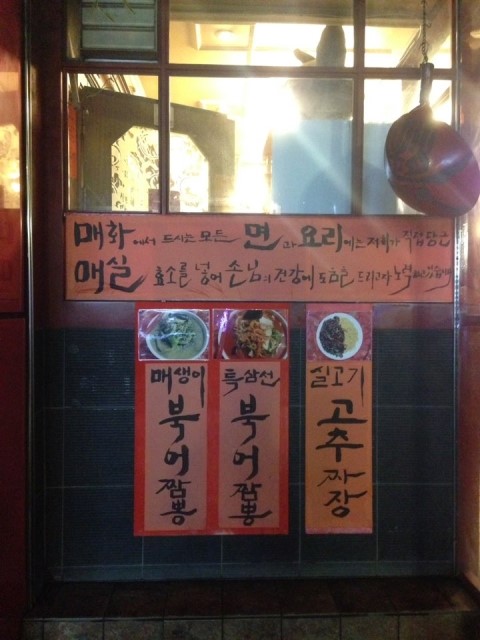 매화에서 드시는 모든 면과 요리에는 저희가 직접 담근
매실 효소를 넣어 손님의 건강에 도움을 드리고자 노력하고 있습니다
매생이
북어
짬뽕
특삼선
북어
짬뽕
실고기
고추
짜장